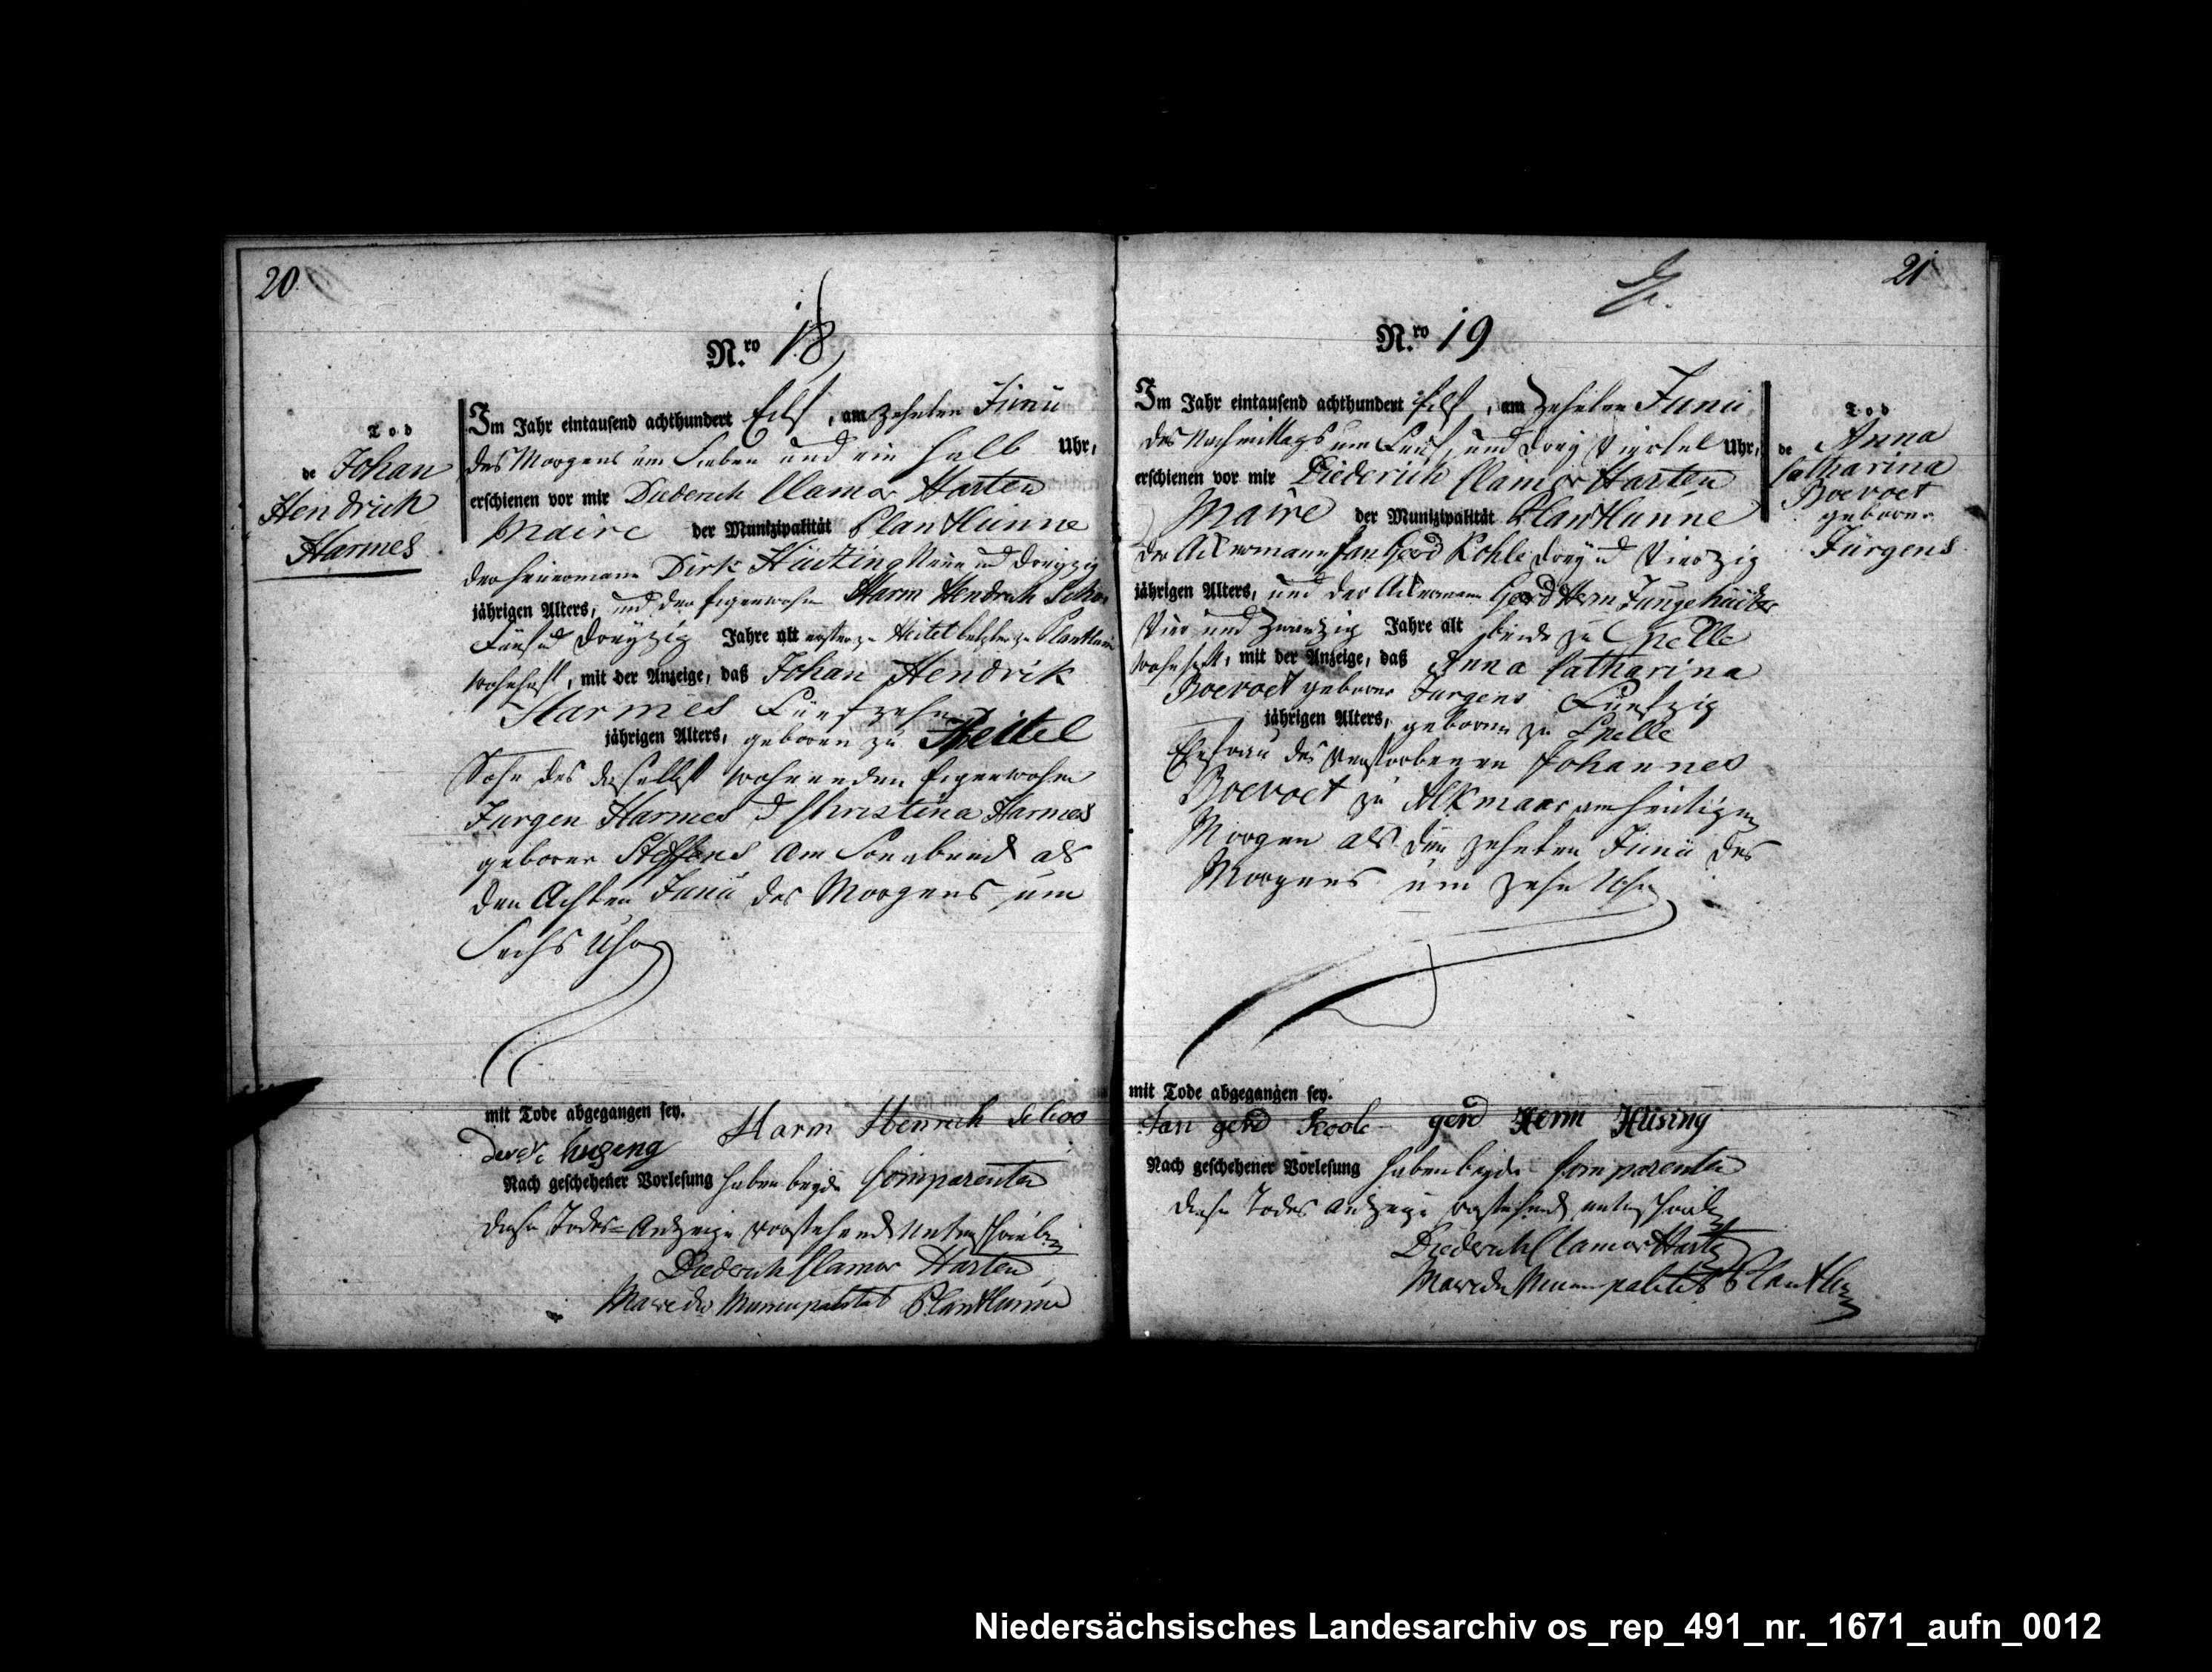 20
N.ro 18
Tod
de Johan
Hendrich
Harmes
Im Jahr eintausend achthundert Eilf, am zehnten Junii
des Morgens um Sieben und ein halb Uhr,
erschienen vor mir Diederich Clamor Harten
Maire der Munizipalität Plantlünne
der Heuermann Dirk Hüsing Neun und dreyzig
jährigen Alters, und der Eigenwohner Harm Hendrich Schoo
Fünf und dreyzig Jahre alt ersterer zu Heitel letzter zu Plantlünne
wohnhaft, mit der Anzeige, daß Johan Hendrik
Harmes Fünfzehn
jährigen Alters, geboren zu Heitel
Sohn des daselbst wohnenden Eigenwohner
Jurgen Harmes und Christina Harmes
geborne Steffens am Sonnabend als
den Achten Junii des Morgens um
Sechs Uhr
mit Tode abgegangen sey.
Harm Henrich Schoo
Nach geschehener Vorlesung haben beyde Comparenten
diese Todes-Anzeige vorstehend unterschrieben
Diederich Clamor Harten
Maire der Municipalitat Plantlünne
21
N.ro 19
Tod
de Anna
Catharina
Boevoet
geborne
Jürgens
Im Jahr eintausend achthundert Eilf, am zehnten Junii
des Nachmittags um Fünf und drey Viertel Uhr,
erschienen vor mir Diederich Clamor Harten
Maire der Munizipalität Plantlünne
der Ackermann Jan Gerd Kohle drey und Vierzig
jährigen Alters, und der Ackermann Gerd Herm Jungehüsing
Vier und zwanzig Jahre alt beide zu Spelle
wohnhaft, mit der Anzeige, daß Anna Catharina
Boevoet geborne Jurgens Fünfzig
jährigen Alters, geboren zu Spelle
Ehefrau des verstorbenen Johannes
Boevoet zu Alkmaar am heutigen
Morgen als den zehnten Junii des
Morgens um zehn Uhr
mit Tode abgegangen sey.
Jan gerd Koole gerd Herm Hüsing
Nach geschehener Vorlesung haben beyde Comparenten
diese Todes Anzeige vorstehend unterschrieben
Diederich Clamor Harten
Maire der Municipalitat Plantlünne
Niedersächsisches Landesarchiv os_rep_491_nr._1671_aufn_0012